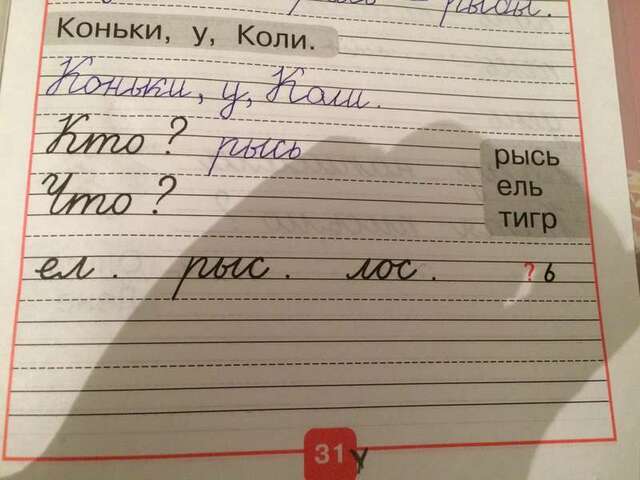 рысь – рысы.
Коньки, у, Коли.
Коньки, у, Коли.
Кто? рысь
Что?
рысь
ель
тигр
ел . рыс . лос . ? ь
31